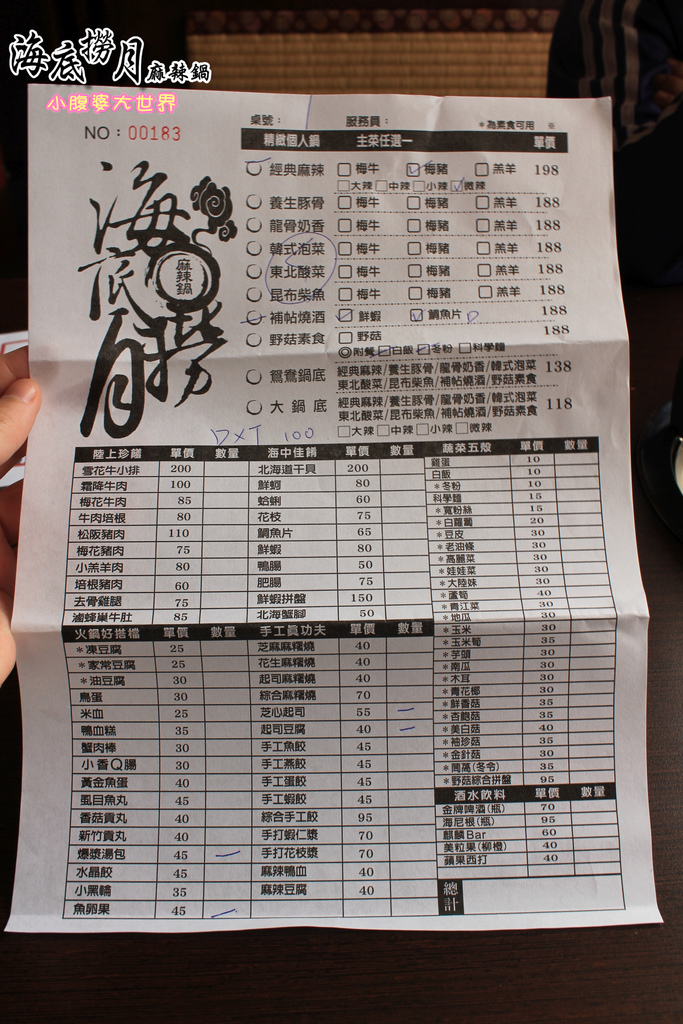 海底撈月麻辣鍋
小腹婆大世界
桌號： 服務員： *為素食可用 ※
NO：00183
精緻個人鍋 主菜任選一 單價
經典麻辣 梅牛 梅豬 羔羊 198
大辣 中辣 小辣 微辣
養生豚骨 梅牛 梅豬 羔羊 188
龍骨奶香 梅牛 梅豬 羔羊 188
韓式泡菜 梅牛 梅豬 羔羊 188
東北酸菜 梅牛 梅豬 羔羊 188
昆布柴魚 梅牛 梅豬 羔羊 188
補帖燒酒 鮮蝦 鯛魚片 188
野菇素食 野菇 188
◎附餐 白飯 冬粉 科學麵
鴛鴦鍋底 經典麻辣/養生豚骨/龍骨奶香/韓式泡菜 138
東北酸菜/昆布柴魚/補帖燒酒/野菇素食
大鍋底 經典麻辣/養生豚骨/龍骨奶香/韓式泡菜 118
東北酸菜/昆布柴魚/補帖燒酒/野菇素食
大辣 中辣 小辣 微辣
海底撈月
麻辣鍋
DXT 100
陸上珍饈 單價 數量
雪花牛小排 200
霜降牛肉 100
梅花牛肉 85
牛肉培根 80
松阪豬肉 110
梅花豬肉 75
小羔羊肉 80
培根豬肉 60
去骨雞腿 75
滷蜂巢牛肚 85
海中佳餚 單價 數量
北海道干貝 200
鮮蚵 80
蛤蜊 60
花枝 75
鯛魚片 65
鮮蝦 80
鴨腸 50
肥腸 75
鮮蝦拼盤 150
北海蟹腳 50
蔬菜五穀 單價 數量
雞蛋 10
白飯 10
*冬粉 10
科學麵 15
*寬粉絲 15
*白蘿蔔 20
*豆皮 30
*老油條 30
*高麗菜 30
*娃娃菜 30
*大陸妹 30
*蘆筍 40
*青江菜 30
*地瓜 30
*玉米 30
*玉米筍 35
*芋頭 30
*南瓜 30
*木耳 30
*青花椰 30
*鮮香菇 35
*杏鮑菇 35
*美白菇 40
*袖珍菇 35
*金針菇 30
*茼萵(冬令) 35
*野菇綜合拼盤 95
火鍋好搭檔 單價 數量
*凍豆腐 25
*家常豆腐 25
*油豆腐 30
鳥蛋 30
米血 25
鴨血糕 35
蟹肉棒 30
小香Q腸 30
黃金魚蛋 40
虱目魚丸 45
香菇貢丸 40
新竹貢丸 40
爆漿湯包 45
水晶餃 45
小黑輪 35
魚卵果 45
手工真功夫 單價 數量
芝麻麻糬燒 40
花生麻糬燒 40
起司麻糬燒 40
綜合麻糬燒 70
芝心起司 55
起司豆腐 40
手工魚餃 45
手工燕餃 45
手工蛋餃 45
手工蝦餃 45
綜合手工餃 95
手打蝦仁漿 70
手打花枝漿 70
麻辣鴨血 40
麻辣豆腐 40
酒水飲料 單價 數量
金牌啤酒(瓶) 70
海尼根(瓶) 95
麒麟Bar 60
美粒果(柳橙) 40
蘋果西打 40
總計